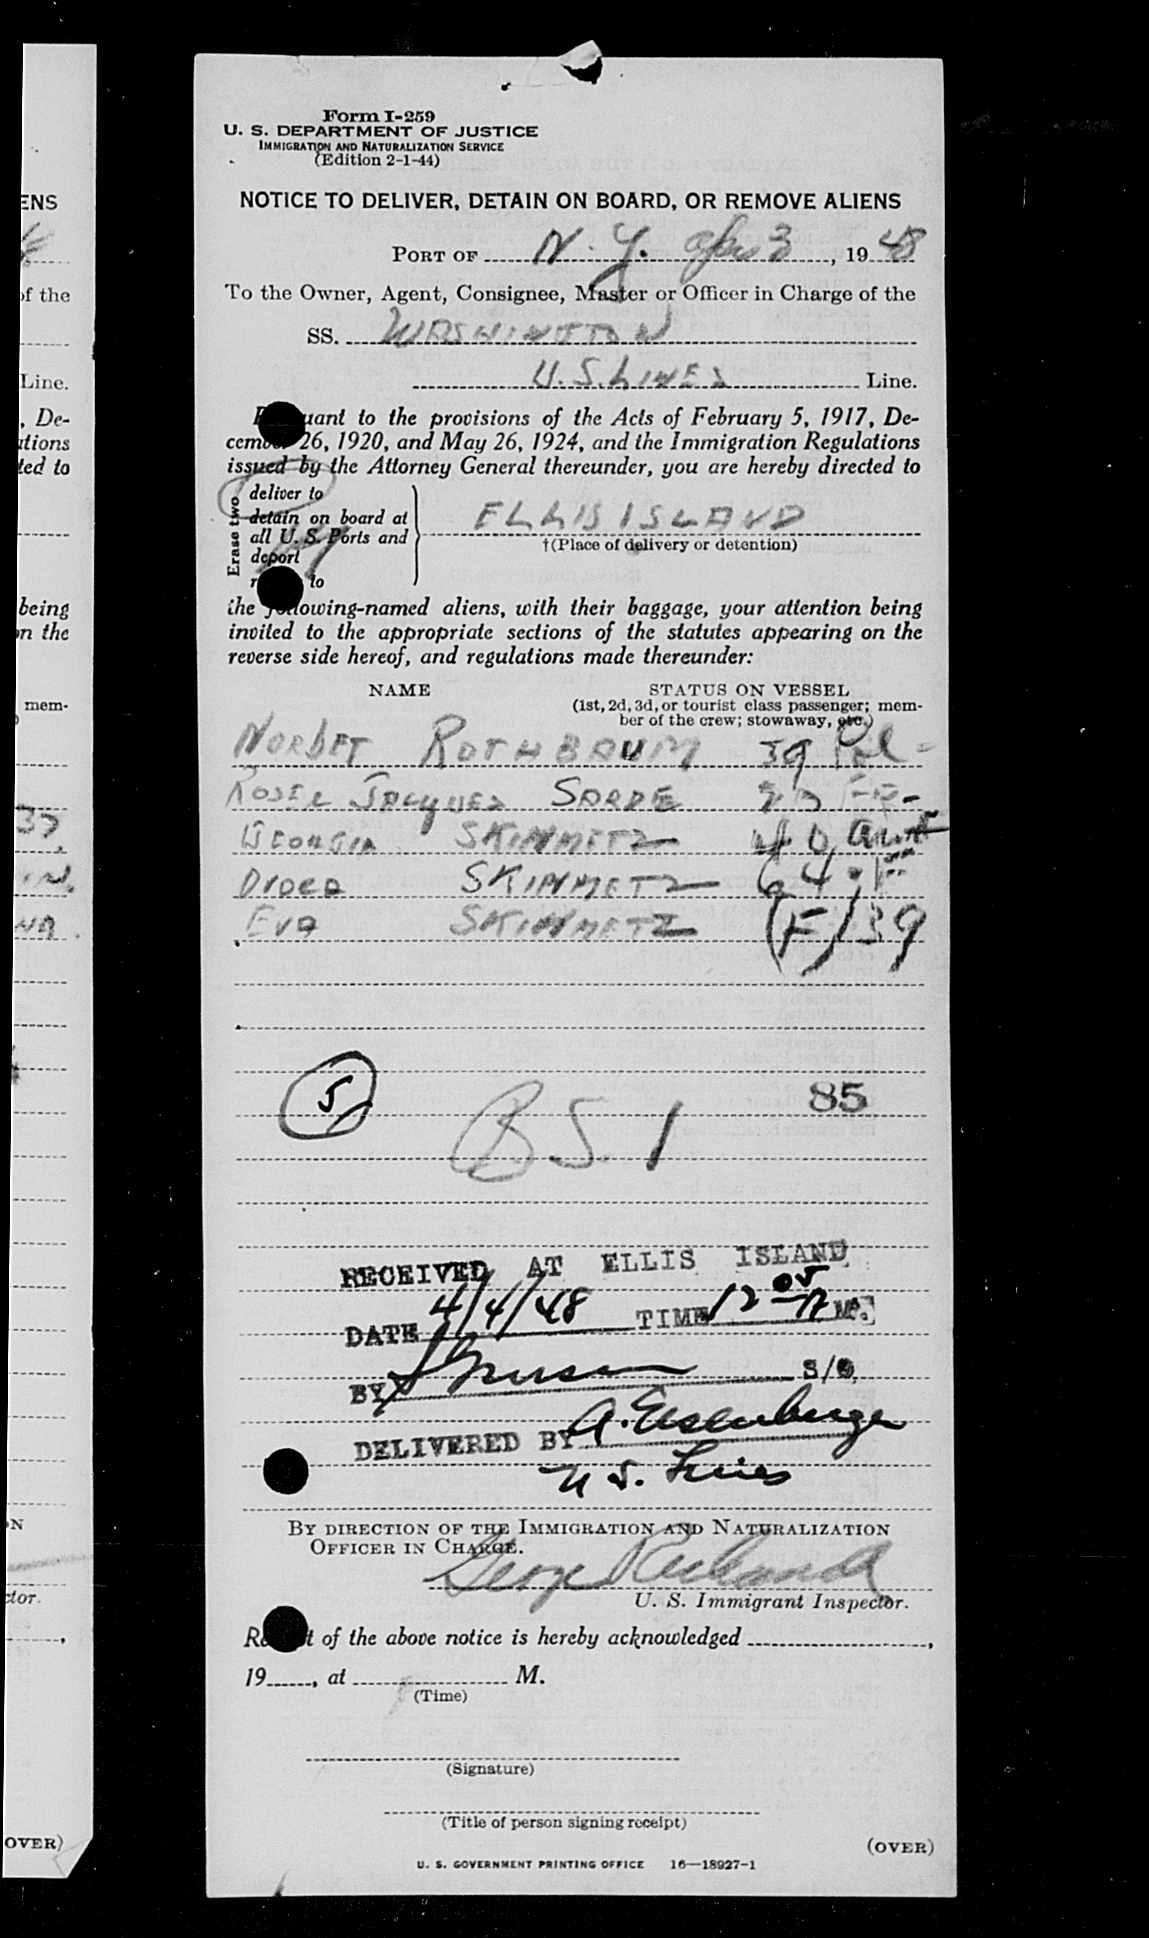 Form I-259
U. S. DEPARTMENT OF JUSTICE
IMMIGRATION AND NATURALIZATION SERVICE
(Edition 2-1-44)
NOTICE TO DELIVER, DETAIN ON BOARD, OR REMOVE ALIENS
PORT OF N. Y. Apr 3, 1948
To the Owner, Agent, Consignee, Master or Officer in Charge of the
SS. WASHINGTON
U. S. LINES Line.
to the provisions of the Acts of February 5, 1917, De-
26, 1920, and May 26, 1924, and the Immigration Regulations
issued by the Attorney General thereunder, you are hereby directed to
Erase two
deliver to
detain on board at
all U. S. Ports and
deport
to
ELLIS ISLAND
†(Place of delivery or detention)
the following-named aliens, with their baggage, your attention being
invited to the appropriate sections of the statutes appearing on the
reverse side hereof, and regulations made thereunder:
NAME STATUS ON VESSEL
(1st, 2d, 3d, or tourist class passenger; mem-
ber of the crew; stowaway, etc.)
NORBET ROTHBAUM 39 Pol -
JACQUES SARDE
GEORGIA SKIMMETZ 40
SKIMMETZ 64 - F
EVA SKIMMETZ (F) 39
5
85
B S. 1
RECEIVED AT ELLIS ISLAND
DATE 4/4/48 TIME 12 05 A M.
BY S/O.
DELIVERED BY A. Eisenberger
U S. Lines
BY DIRECTION OF THE IMMIGRATION AND NATURALIZATION
OFFICER IN CHARGE.
George
U. S. Immigrant Inspector.
of the above notice is hereby acknowledged ,
19 , at M.
(Time)
(Signature)
(Title of person signing receipt)
(OVER)
U. S. GOVERNMENT PRINTING OFFICE 16—18927-1
ENS
of the
Line.
, De-
ations
ted to
being
on the
mem-
37.
IN.
tor.
OVER)